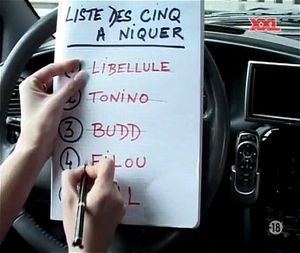 XXL
LISTE DES CINQ
A NIQUER
LIBELLULE
2 TONINO
3 BUDD
4 FILOU
-18